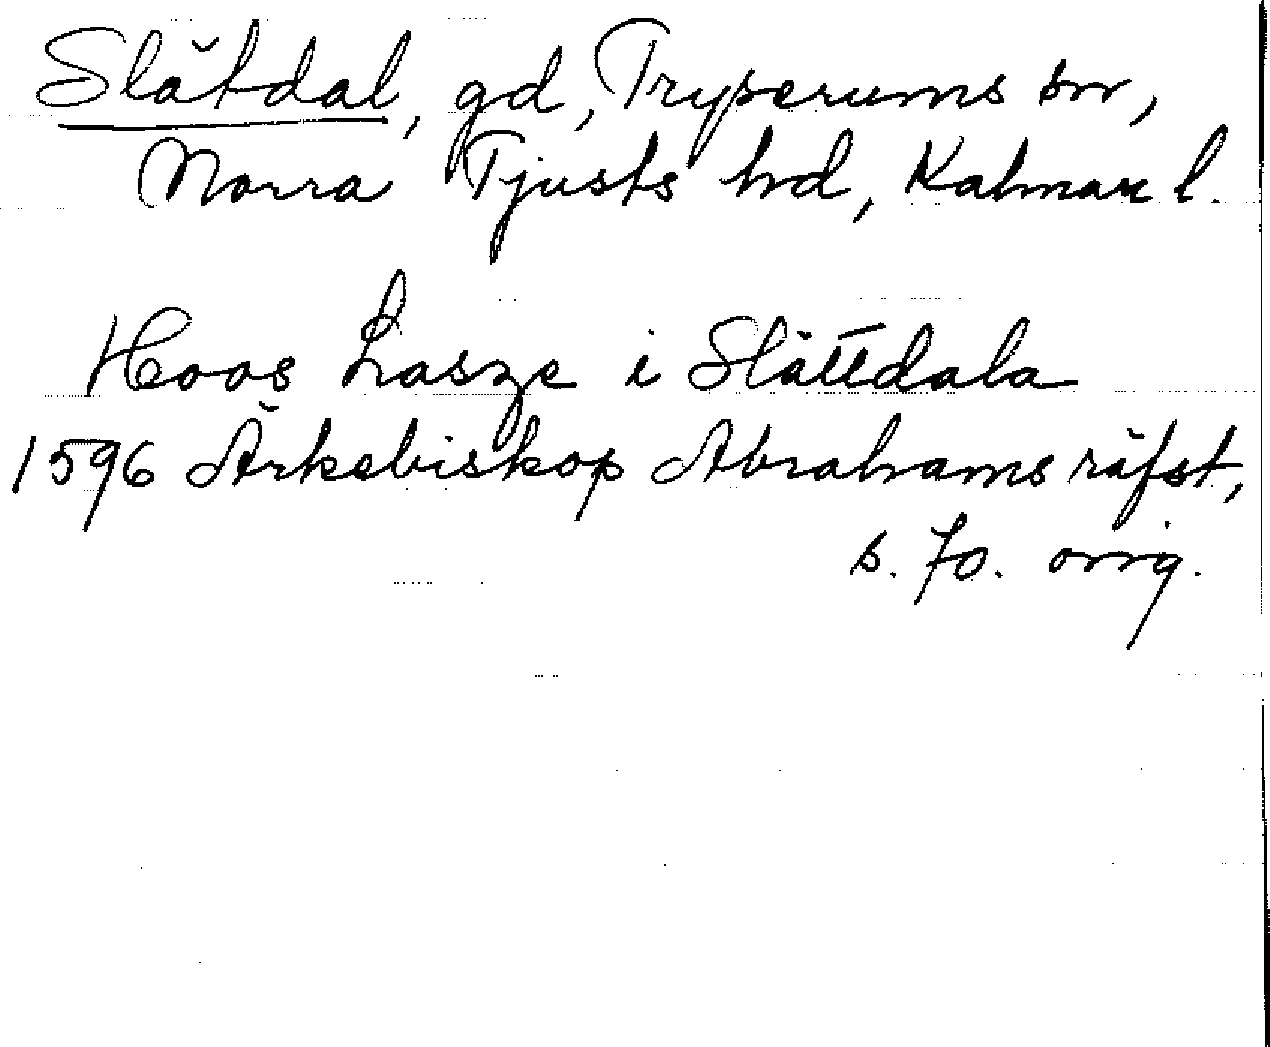 Slätdal, gd, Tryserums sn,
Norra Tjusts hd, Kalmar l.
Hoos Lasze i Slättdala
1596 Ärkebiskop Abrahams räfst,
s. 70. orig.